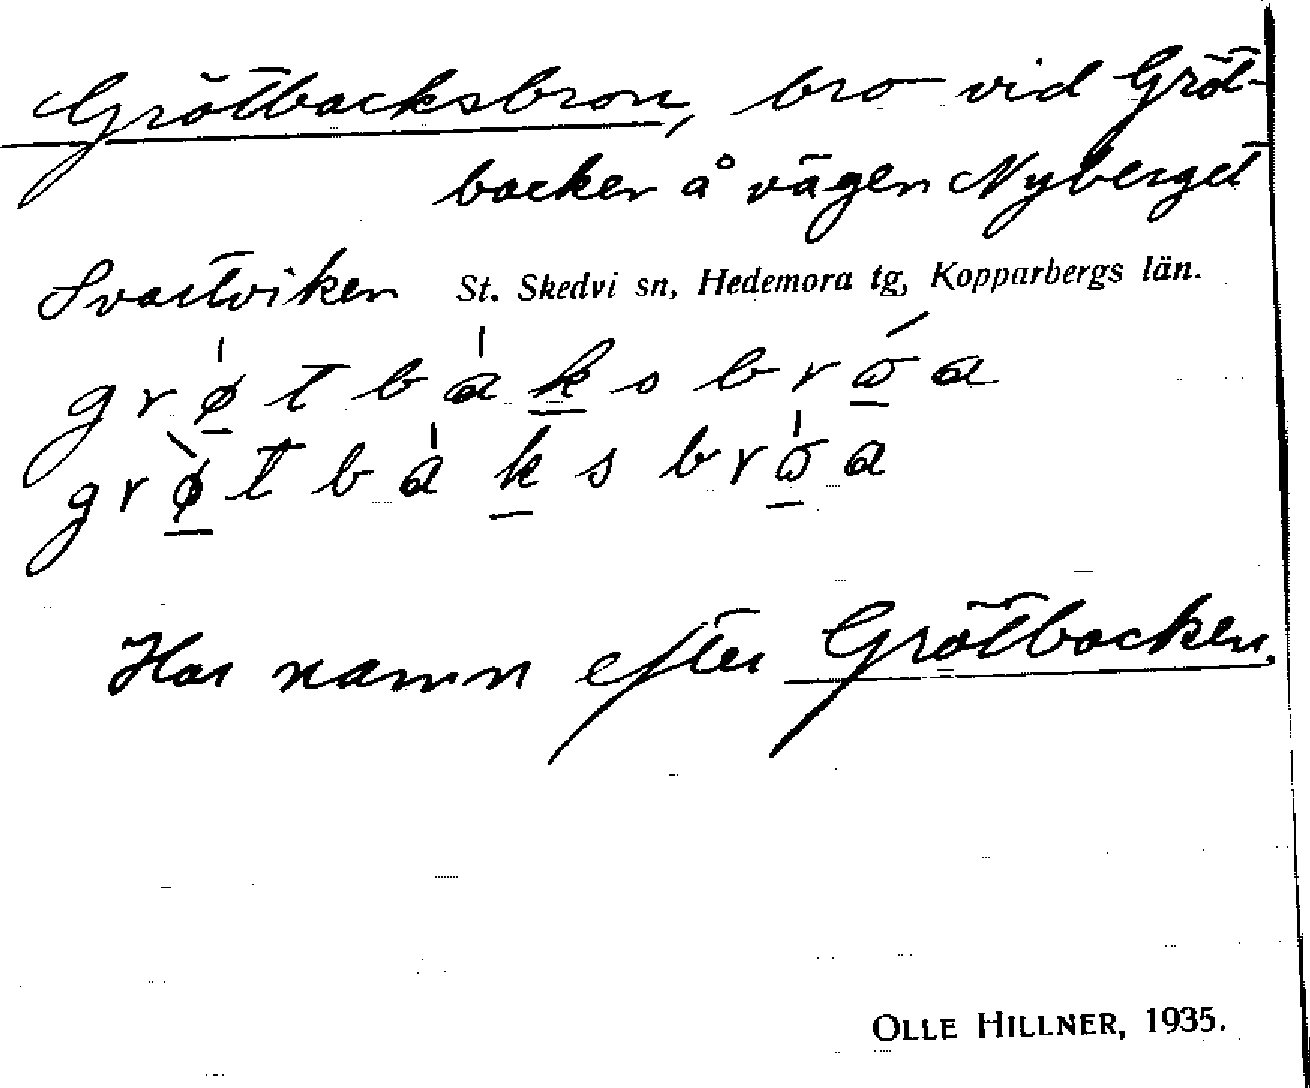 Grötbacksbron, bro vid Gröt-
backen å vägen Nyberget
Svartviken St. Skedvi sn, Hedemora tg, Kopparbergs län.
grøtbaksbrωa
grøtbaksbrωa
Har namn efter Grötbacken.
OLLE HILLNER, 1935.